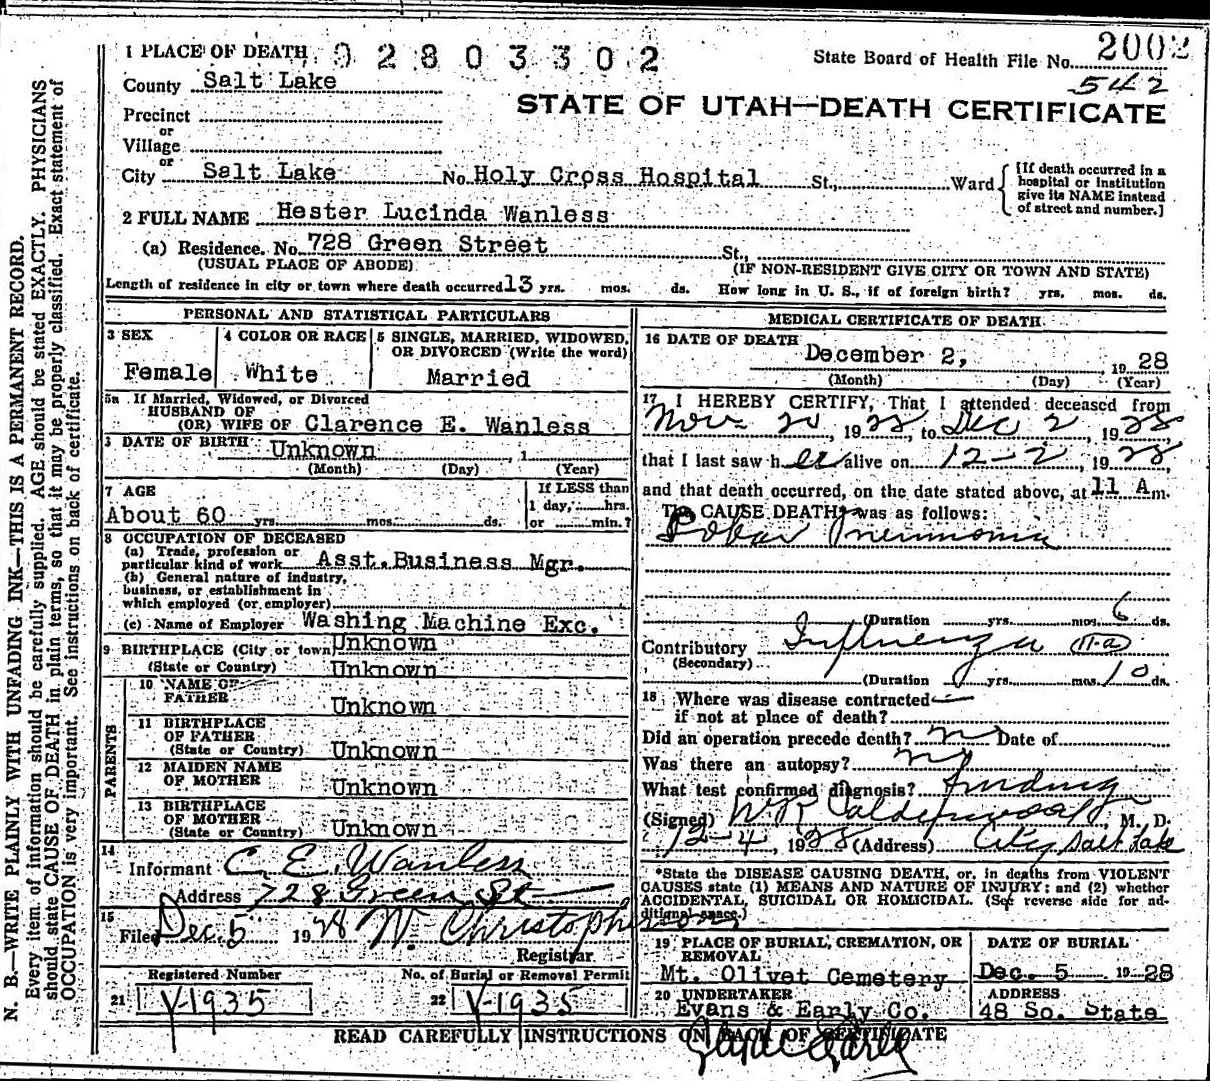 1 PLACE OF DEATH 02803302
State Board of Health File No. 2002
542
County Salt Lake
STATE OF UTAH—DEATH CERTIFICATE
Precinct
or
Village
or
City Salt Lake No. Holy Cross Hospital St., Ward
[If death occurred in a
hospital or institution
give its NAME instead
of street and number.]
2 FULL NAME Hester Lucinda Wanless
(a) Residence. No. 728 Green Street St.,
(USUAL PLACE OF ABODE) (IF NON-RESIDENT GIVE CITY OR TOWN AND STATE)
Length of residence in city or town where death occurred 13 yrs. mos. ds. How long in U. S., if of foreign birth? yrs. mos. ds.
PERSONAL AND STATISTICAL PARTICULARS
3 SEX
Female
4 COLOR OR RACE
White
5 SINGLE, MARRIED, WIDOWED,
OR DIVORCED (Write the word)
Married
5a If Married, Widowed, or Divorced
HUSBAND OF
(OR) WIFE OF Clarence E. Wanless
DATE OF BIRTH Unknown, 1
(Month) (Day) (Year)
7 AGE
About 60 yrs. mos. ds.
If LESS than
1 day, hrs.
or min.?
8 OCCUPATION OF DECEASED
(a) Trade, profession or
particular kind of work Asst. Business Mgr.
(b) General nature of industry,
business, or establishment in
which employed (or employer)
(c) Name of Employer Washing Machine Exc.
9 BIRTHPLACE (City or town) Unknown
(State or Country) Unknown
PARENTS
10 NAME OF
FATHER Unknown
11 BIRTHPLACE
OF FATHER
(State or Country) Unknown
12 MAIDEN NAME
OF MOTHER Unknown
13 BIRTHPLACE
OF MOTHER
(State or Country) Unknown
14
Informant C. E. Wanless
Address 728 Green St
15
Filed Dec. 5 1928 W. Christopherson
Registrar
Registered Number
21 V-1935
No. of Burial or Removal Permit
22 V-1935
MEDICAL CERTIFICATE OF DEATH
16 DATE OF DEATH
December 2, 1928
(Month) (Day) (Year)
17 I HEREBY CERTIFY, That I attended deceased from
Nov 20, 1928, to Dec 2, 1928
that I last saw her alive on 12-2, 1928,
and that death occurred, on the date stated above, at 11 A m.
The CAUSE DEATH* was as follows:
Lobar Pneumonia
(Duration yrs. mos. 6 ds.
Contributory Influenza (11-a)
(Secondary)
(Duration yrs. mos. 10 ds.
18 Where was disease contracted
if not at place of death?
Did an operation precede death? no Date of
Was there an autopsy? no
What test confirmed diagnosis? findings
(Signed) W R Calderwood, M. D.
12-4, 1928 (Address) City Salt Lake
*State the DISEASE CAUSING DEATH, or, in deaths from VIOLENT
CAUSES state (1) MEANS AND NATURE OF INJURY; and (2) whether
ACCIDENTAL, SUICIDAL OR HOMICIDAL. (See reverse side for ad-
ditional space.)
19 PLACE OF BURIAL, CREMATION, OR
REMOVAL
Mt. Olivet Cemetery
DATE OF BURIAL
Dec. 5 1928
20 UNDERTAKER
Evans & Early Co.
ADDRESS
48 So. State
READ CAREFULLY INSTRUCTIONS ON BACK OF CERTIFICATE
N. B.—WRITE PLAINLY WITH UNFADING INK—THIS IS A PERMANENT RECORD.
Every item of information should be carefully supplied. AGE should be stated EXACTLY. PHYSICIANS
should state CAUSE OF DEATH in plain terms, so that it may be properly classified. Exact statement of
OCCUPATION is very important. See instructions on back of certificate.